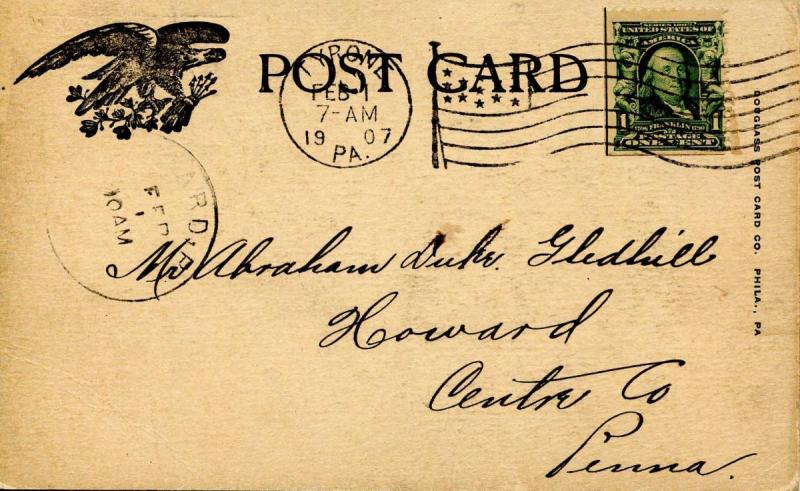 POST CARD
TYRONE
FEB 1
7-AM
19 07
PA.
SERIES 1902
UNITED STATES OF
AMERICA
1790 FRANKLIN 1790
POSTAGE
1 ONE CENT
FEB
1
10AM
Mr Abraham Duke Gledhill
Howard
Centre Co
Penna.
DOUGLASS POST CARD CO. PHILA., PA